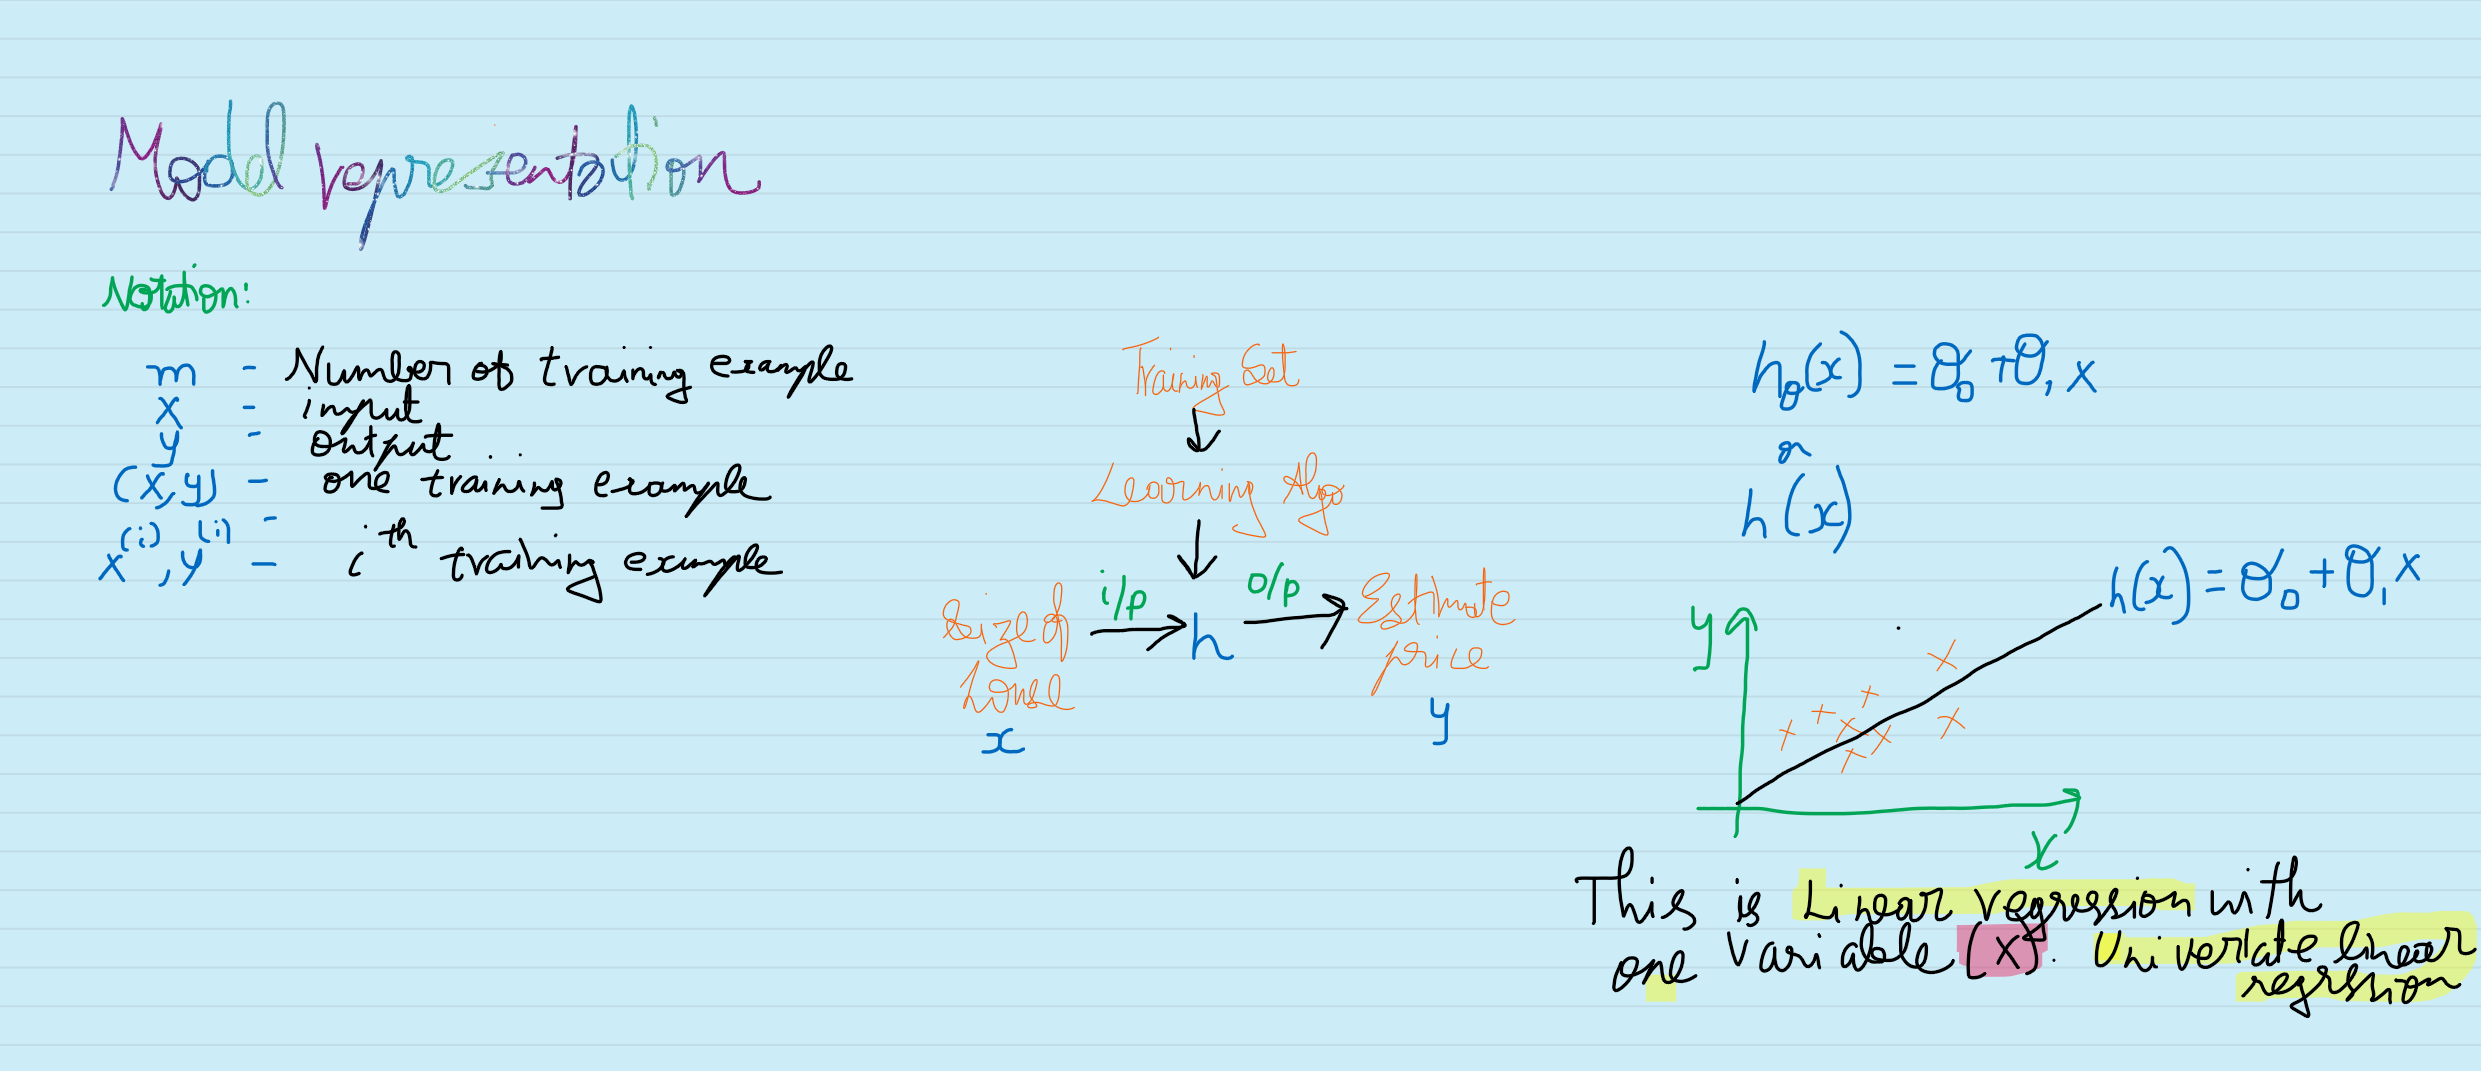 Model representation
Notation:
m - Number of training example
x - input
y - output
(x,y) - one training example
x⁽ⁱ⁾, y⁽ⁱ⁾ = iᵗʰ training example
Training Set
Learning Algo
Size of
house
x
i/p
h
o/p
Estimate
price
y
hθ(x) = θ₀ + θ₁ x
or
h(x)
h(x) = θ₀ + θ₁ x
y
x
This is Linear regression with
one variable (x). Univeriate linear
regrssion